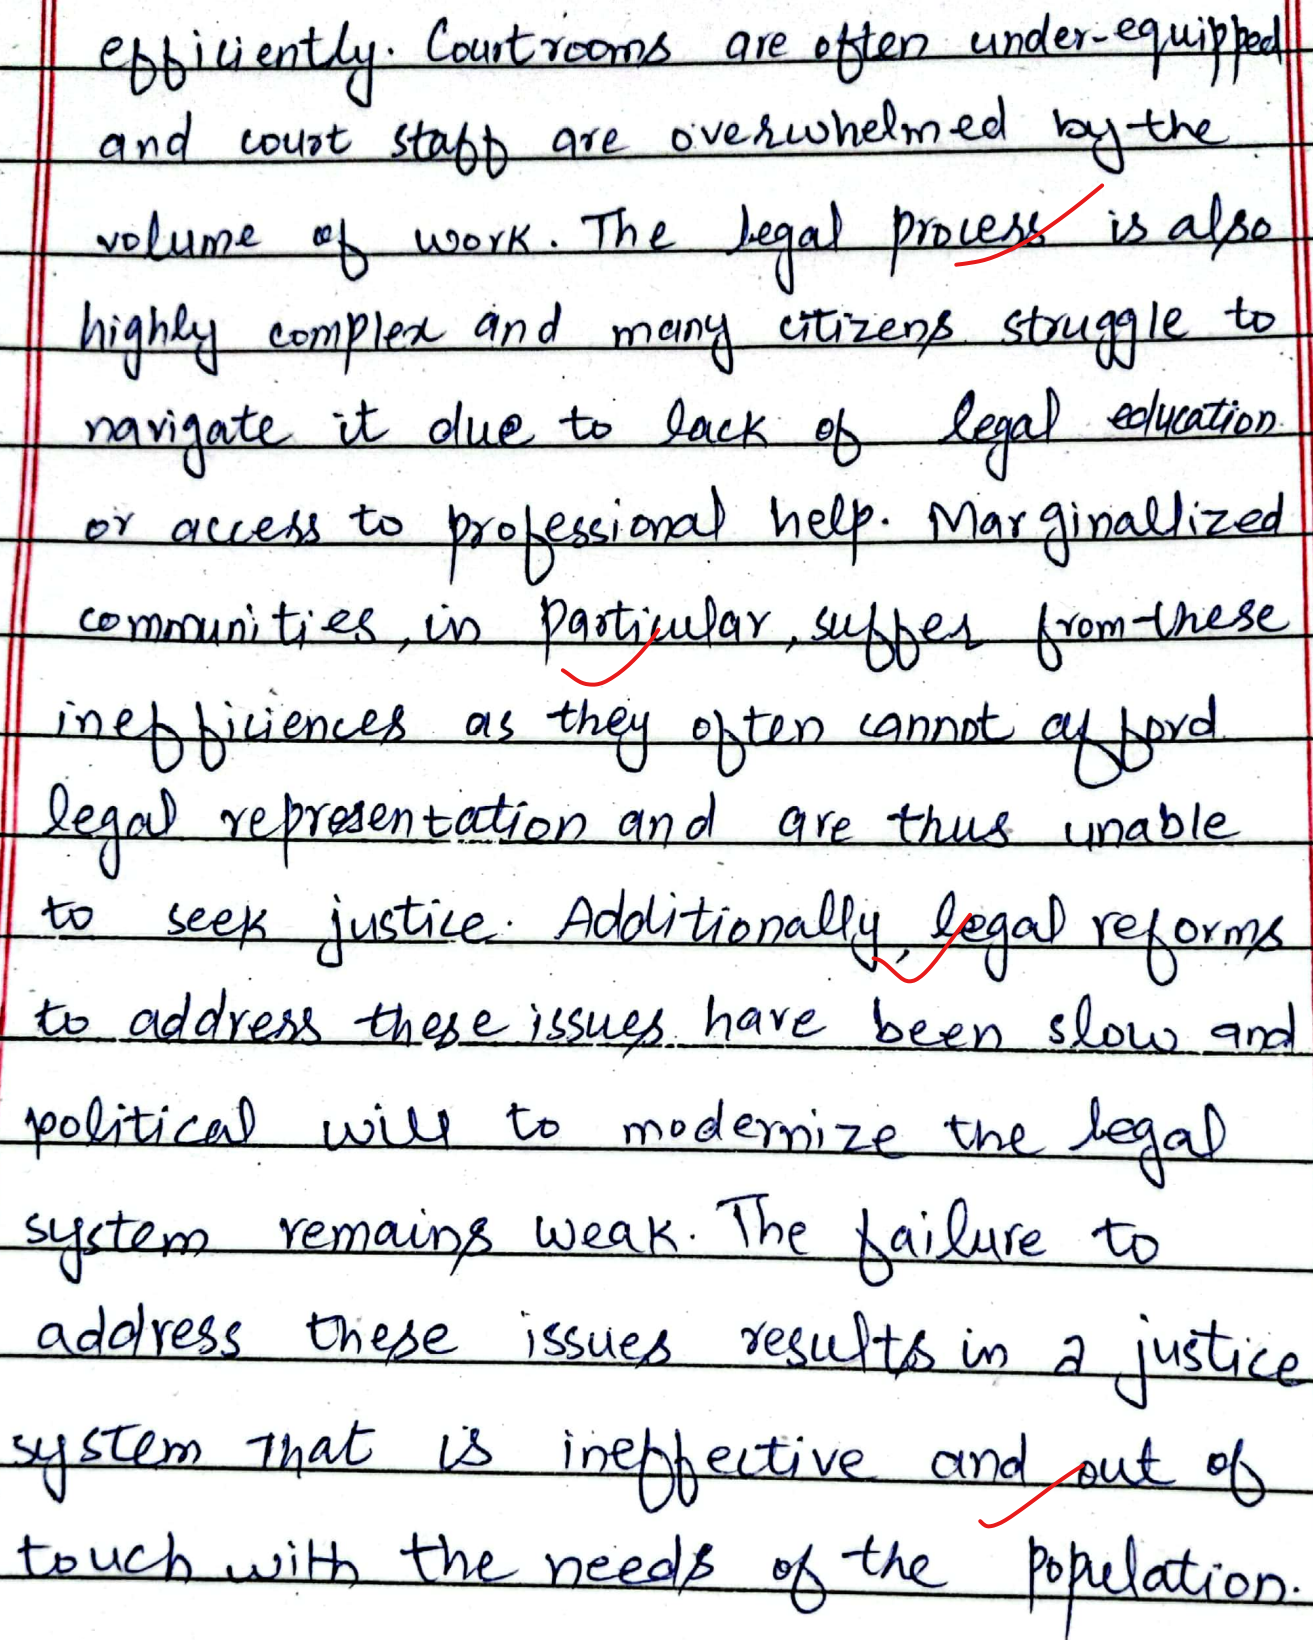 efficiently. Courtrooms are often under-equipped
and court staff are overwhelmed by the
volume of work. The legal process is also
highly complex and many citizens struggle to
navigate it due to lack of legal education
or access to professional help. Marginallized
communities, in particular, suffer from these
inefficiences as they often cannot afford
legal representation and are thus unable
to seek justice. Additionally, legal reforms
to address these issues have been slow and
political will to modernize the legal
system remains weak. The failure to
address these issues results in a justice
system that is ineffective and out of
touch with the needs of the population.